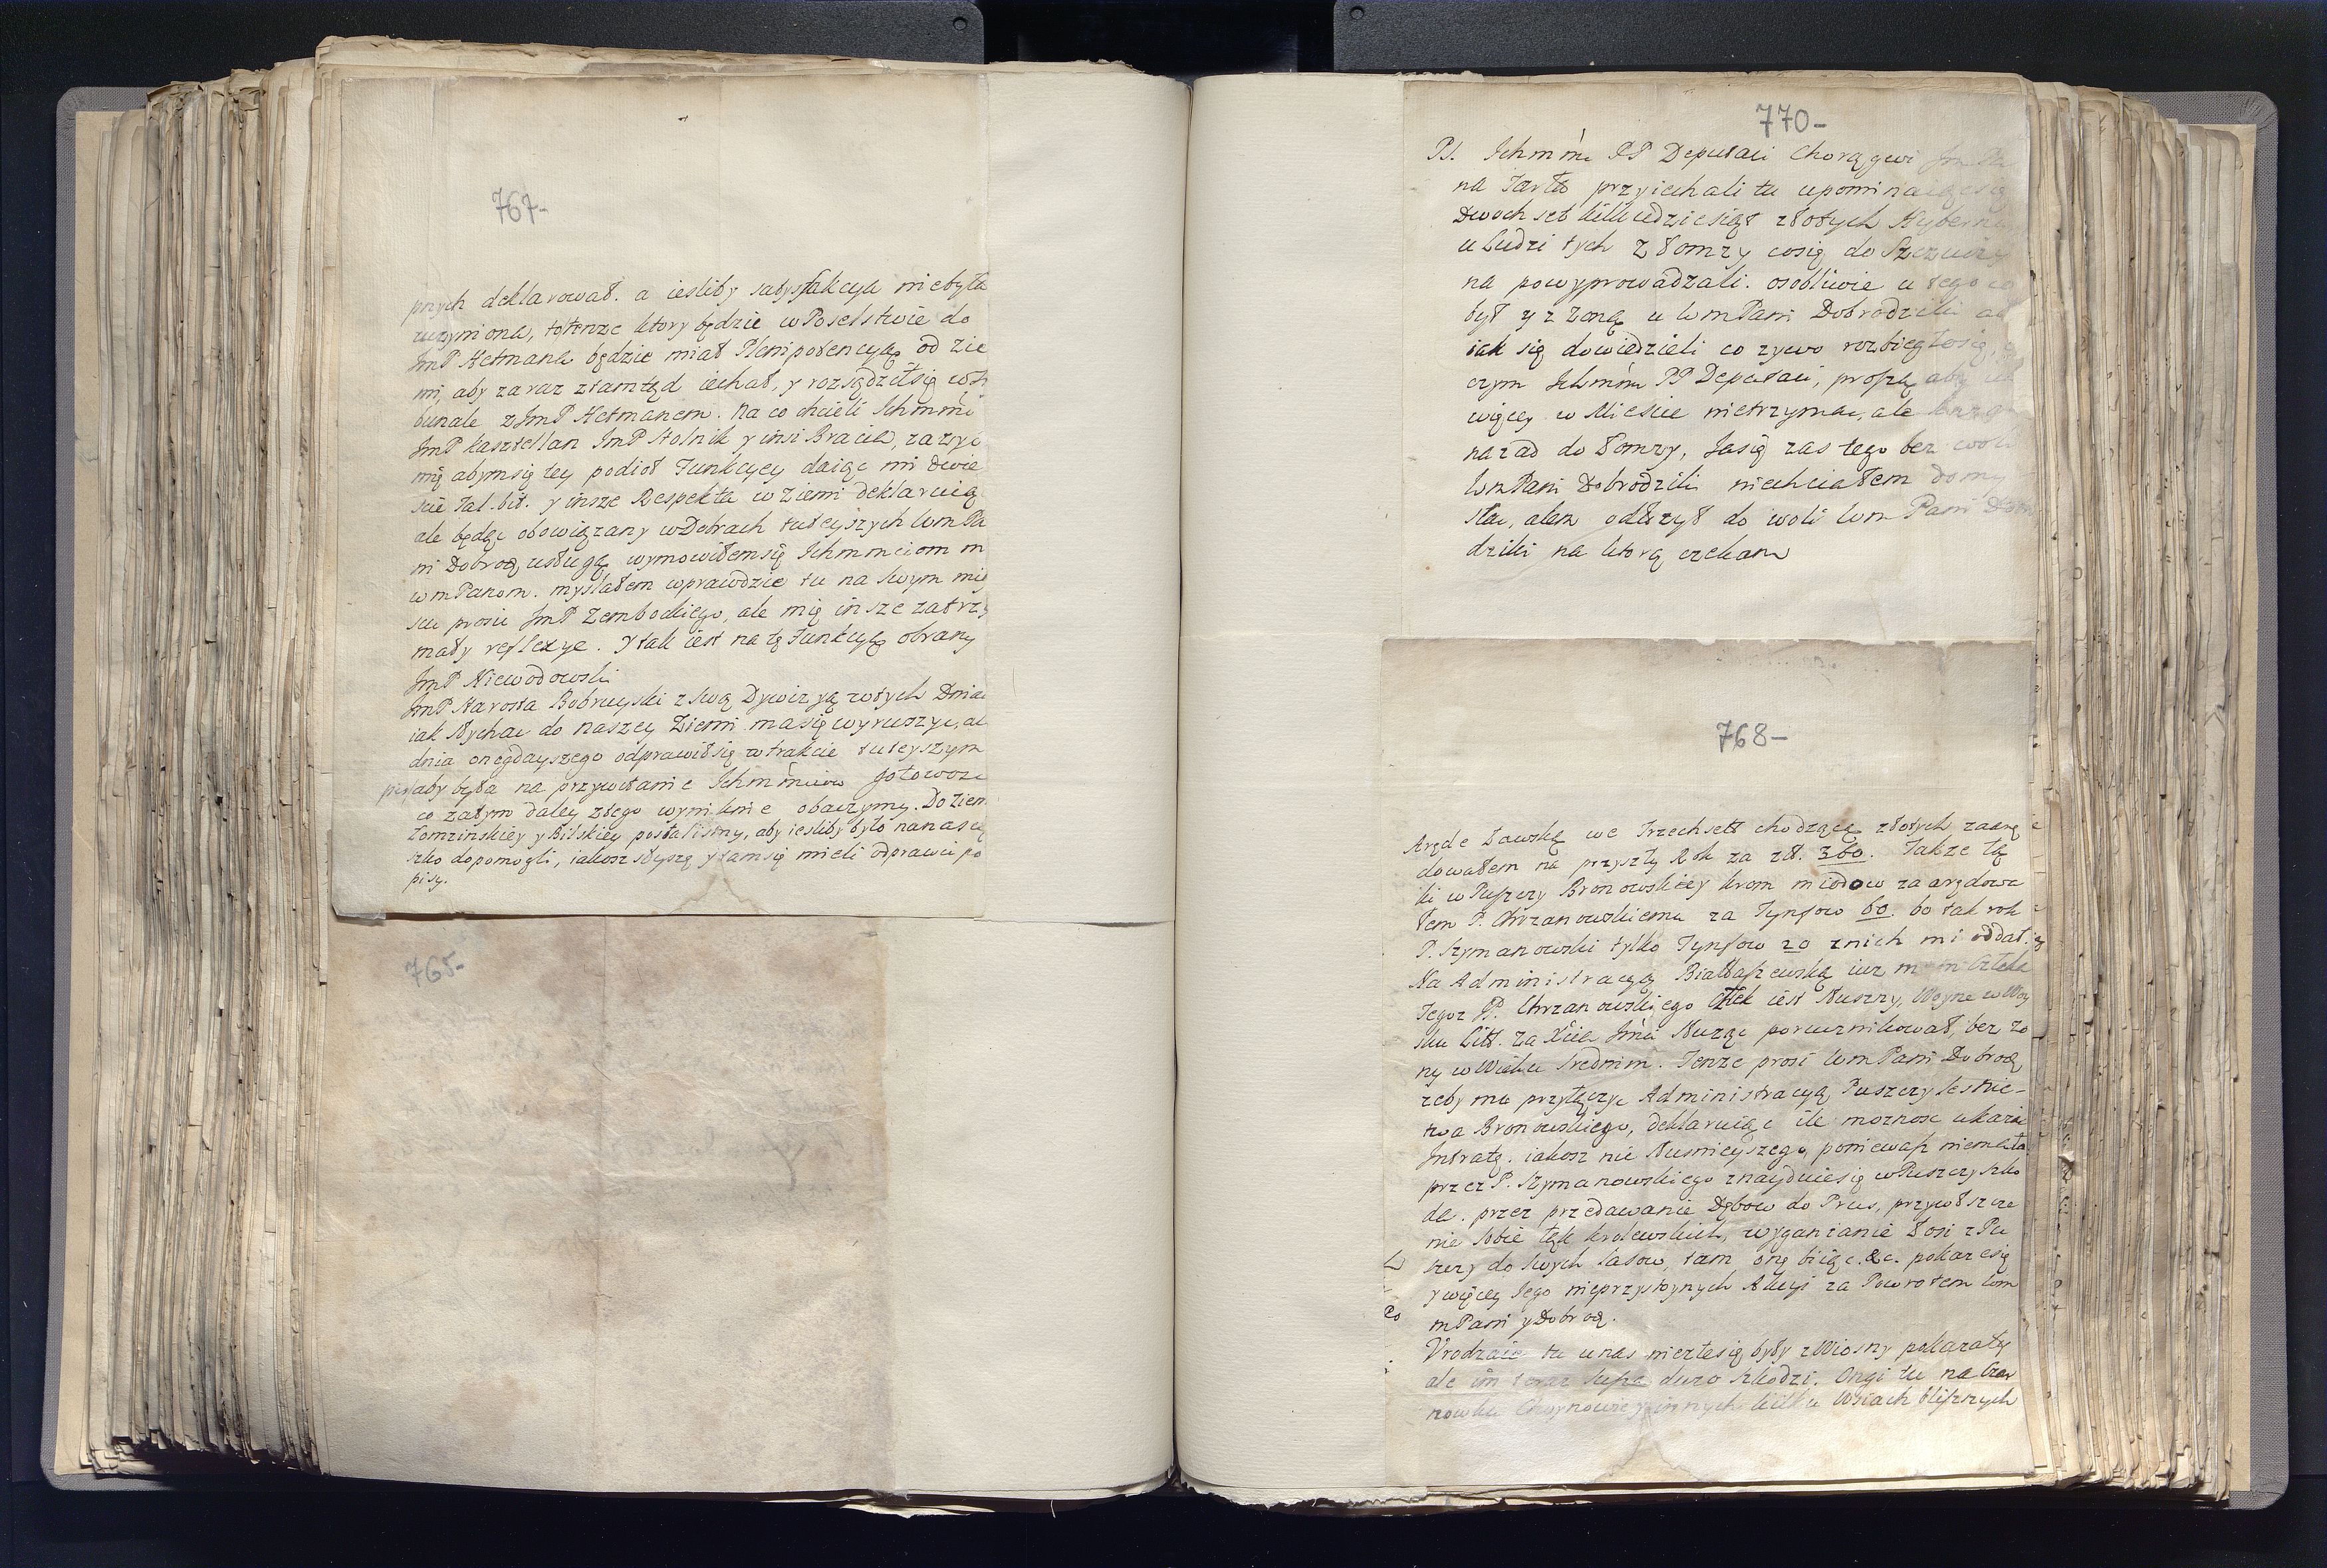 767-
przych deklarował. a iesliby satysfakcya niebyła
uczyniona, totenze ktory będzie w Poselstwie do
JmP Hetmana będzie miał Plenipotencyą od Zie
mi, aby zaraz ztamtąd iechał, y rozsądziłsię w Tr
bunale z JmP Hetmanem. Na co chcieli Ichmmć
JmP Kasztellan JmP Stolnik y insi Bracia, zazyć
mię abymsię tey podiął Funkcyey daiąc mi dwie
scie Tal. bit. y insze Respekta w Ziemi deklaruią
ale będąc obowiązany w Dobrach tuteyszych WmPa
ni Dobrodz usługą wymowiłemsię Ichmmciom m
wmPanom. myslałem wprawdzie tu na swym miey
scu prosić JmP Zembockiego, ale mię insze zatrzy
mały reflexye. Y tak iest na tę Funkcyą obrany
JmP Niewodowski
JmP Starosta Bobruyski z swą Dywizyą w tych Dniac
iak słychać do naszey Ziemi masię wyruszyć, al
dnia onegdayszego odprawiłsię w trakcie tuteyszym
pis, aby była na przywitanie Ichmmciow gotowosc
co zatym daley z tego wyniknie obaczymy. Do Ziem
Łomzinskiey y Bilskiey posłalismy, aby iesliby było na nas cię
szko dopomogli, iakosz słyszę y tamsię mieli odprawić po
pisy.
765-
770-
PS. Ichmmc PP Deputaci Chorągwi Jm Pa
na Tarła przyiechali tu upominaiącsię
Dwoch set kilkudziesiąt złotych Hyberny
u Ludzi tych z Łomzy cosię do Szczuczy
na powyprowadzali. osobliwie u tego co
był y z Zoną u WmPani Dobrodziki al
iak się dowiedzieli co zywo rozbiegłosię,
czym Ichmmc PP Deputaci, proszą aby ich
więcey w Miescie nietrzymac, ale kazac
nazad do Łomzy, Jasię zas tego bez woli
WmPani Dobrodziki niechciałem domy
slac, alem odłozył do woli Wm Pani Dobro
dziki na ktorą czekam
768-
Arędę Ławską we Trzechset chodzącą złotych zaarę
dowałem na przyszły Rok za zł. 360. Także łą
ki w Puszczy Bronowskiey krom miodow zaarędowa
łem P. Chrzanowskiemu za Tynfow 60. bo tak rok
P. Szymanowski tylko Tynfow 20 z nich mi oddał.
Na Administracyą Białłaszewską iuz mam Człeka
Tegoz P. Chrzanowskiego Człek iest słuszny, Woyne w Woy
sku Litt. za Xcia Jmci słuząc porucznikował, bez Zo
ny w Wieku srednim. Tenze prosi WmPani Dobrodz
zeby mu przyłączyc Administracyą Puszczy lesnic-
twa Bronowskiego, deklaruiąc ile moznosc ukazać
Intratę. iakosz nic słusznieyszego, poniewasz niemała
przez P. Szymanowskiego znayduiesię w Puszczy szko
da. przez przedawanie Dębow do Prus, przywłszcze
nie sobie łąk krolewskich, wyganianie Łosi z Pu
szczy do swych lasow, tam onę biiąc. &c. pokazesię
y więcey Jego nieprzystoynych Akcyi za Powrotem Wm
mPani y Dobrodz.
Vrodzaie tu unas niezlesię były z Wiosny pokazały
ale im teraz susza duzo szkodzi. Ongi tu na Czar
nowku Choynowie y innych kilku Wsiach bliższych